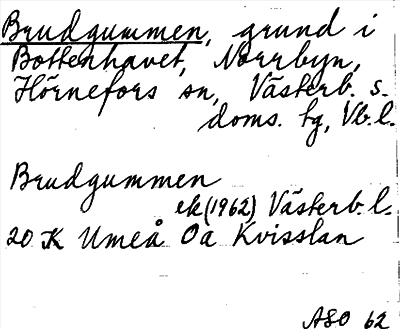 Brudgummen, grund i
Bottenhavet, Norrbyn,
Hörnefors sn, Västerb. s.
doms. tg, Vb. l.
Brudgummen
ek (1962) Västerb. l.
20 K Umeå Oa Kvisslan
ASO 62